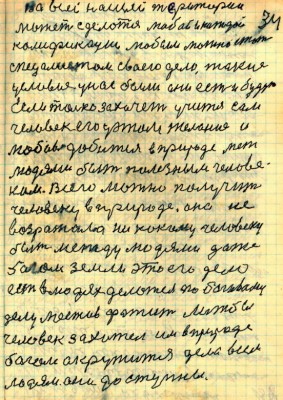 на всей нашей территории
может сделотся любая каждой 34
комфикацуи любым можно стат
спецалистом своего дела такие
условия у нас были они ест и будут
Если толко захочет учится сам
человек его в этом желание и
любов добится в природе меж
людями быт полезным челове-
ком. Всего можно получит
человеку в природе. она не
возражала ни какому человеку
быт между людями даже
богом земли это его дело
ест в людях делотся по болшому
делу места хватит лиж бы
человек захотел им в природе
богом окружится дела всем
людям. они доступны.